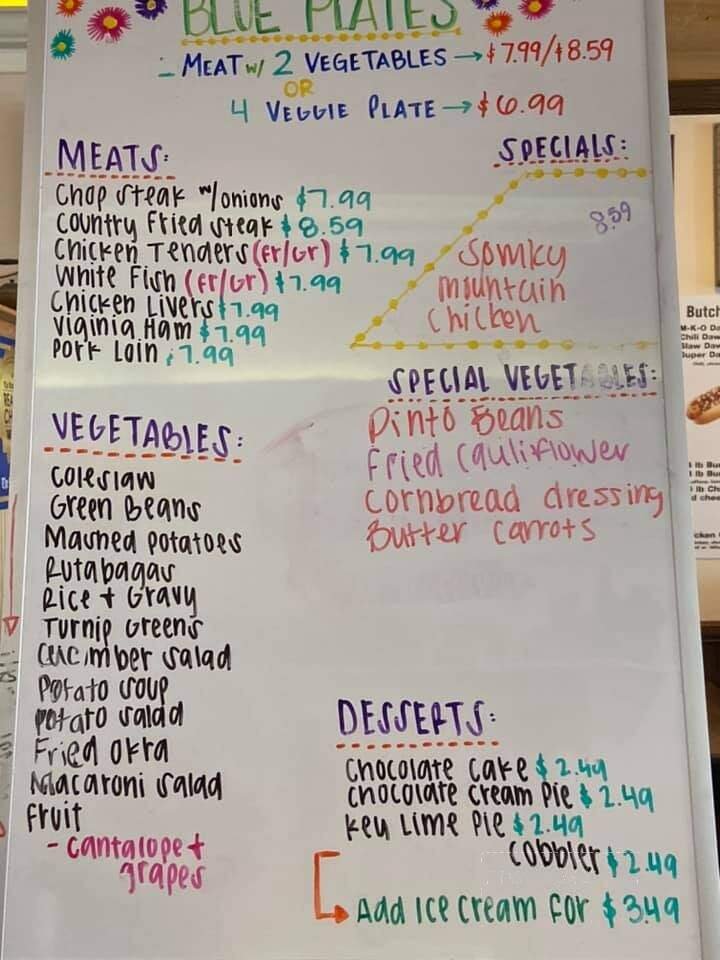 BLUE PLATES
- MEAT w/ 2 VEGETABLES → $7.99/$8.59
OR
4 VEGGIE PLATE → $6.99
MEATS:
Chop steak w/onions $7.99
Country Fried steak $8.59
Chicken Tenders (Fr/Gr) $7.99
White Fish (Fr/Gr) $7.99
Chicken Livers $7.99
Viginia Ham $7.99
Pork Loin $7.99
SPECIALS:
8.59
Somky
mountain
chicken
SPECIAL VEGETABLES:
Pinto Beans
Fried Cauliflower
Cornbread dressing
Butter Carrots
VEGETABLES:
Coleslaw
Green Beans
Mashed potatoes
Rutabagas
Rice + Gravy
Turnip Greens
Cucumber salad
Potato soup
potato salad
Fried okra
Macaroni salad
Fruit
- cantalope +
grapes
DESSERTS:
Chocolate Cake $2.49
chocolate cream pie $2.49
Key Lime Pie $2.49
Cobbler $2.49
Add Ice Cream for $3.49
Butch
M-K-O Da
Chili Daw
Slaw Daw
Super Da